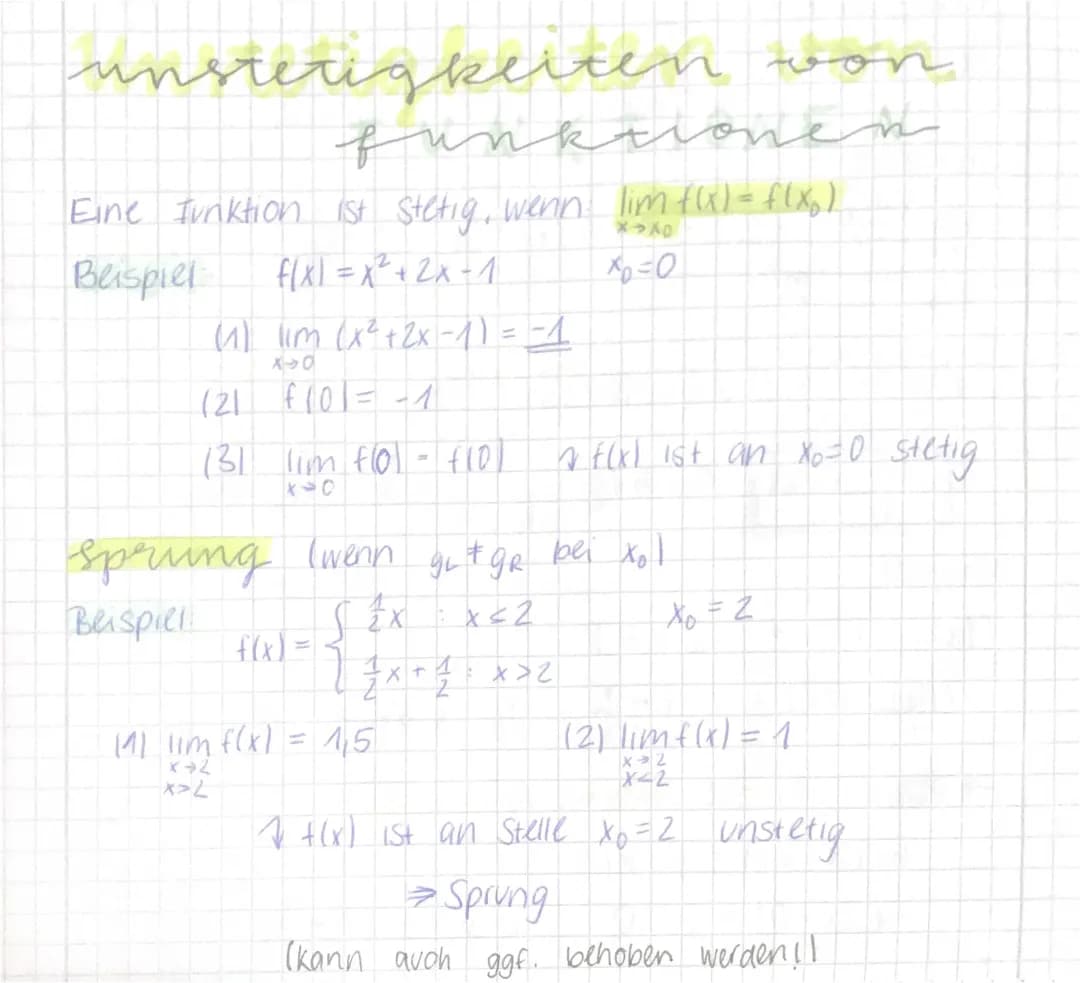 Unstetigkeiten von
Funktionen
Eine Funktion ist stetig, wenn: lim f(x) = f(x₀)
x→x₀
Beispiel: f(x) = x² + 2x - 1 x₀ = 0
(1) lim (x² + 2x - 1) = -1
x→0
(2) f(0) = -1
(3) lim f(0) = f(0) ↴ f(x) ist an x₀=0 stetig
x→0
Sprung (wenn gL ≠ gR bei x₀)
Beispiel: f(x) = { ½x : x ≤ 2 x₀ = 2
½x + ½ : x > 2
(1) lim f(x) = 1,5 (2) lim f(x) = 1
x→2 x→2
x>2 x<2
↴ f(x) ist an Stelle x₀ = 2 unstetig
⇒ Sprung
(kann auch ggf. behoben werden!)